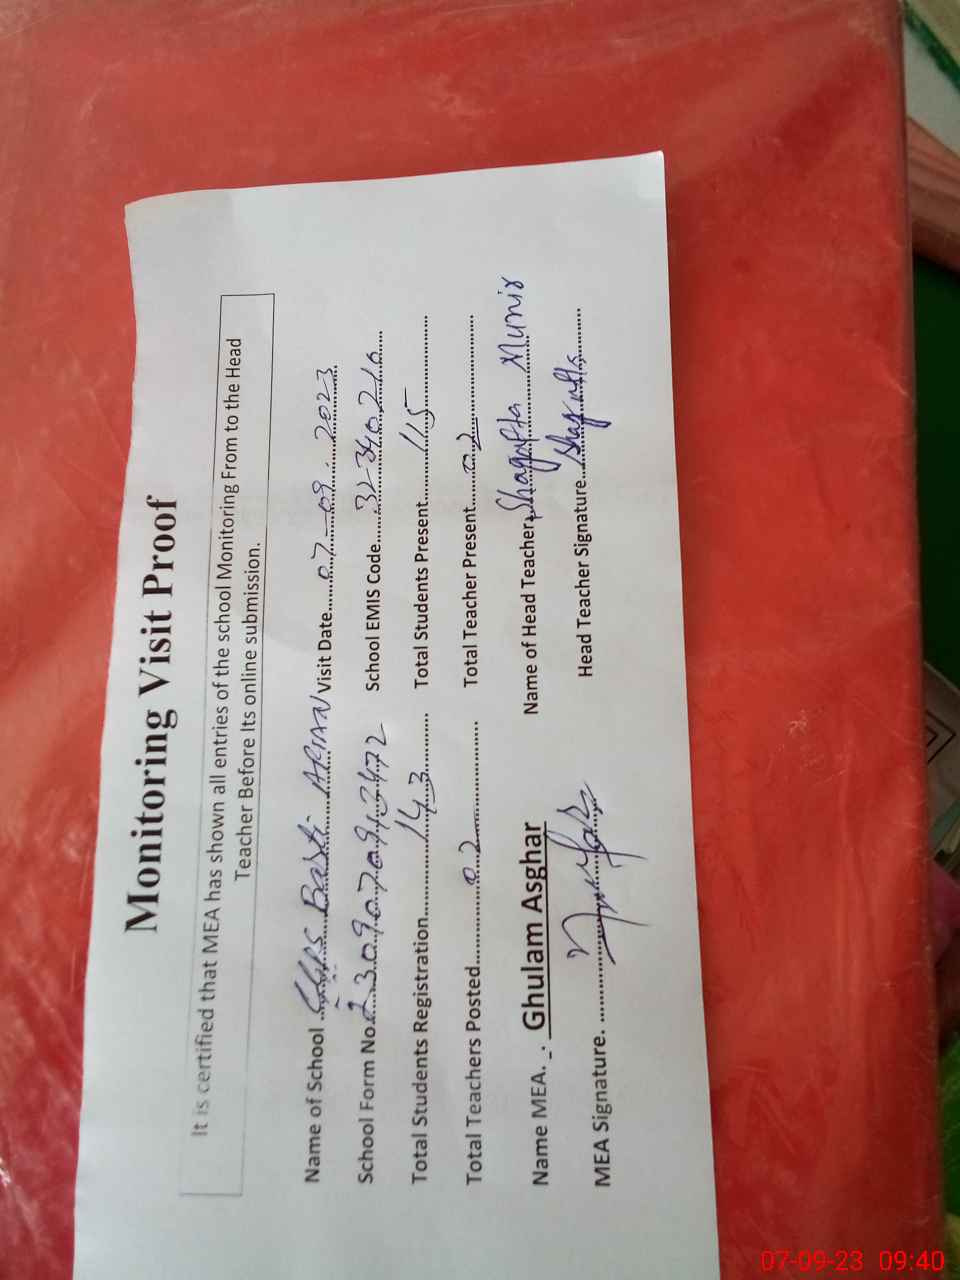 Monitoring Visit Proof
It is certified that MEA has shown all entries of the school Monitoring From to the Head
Teacher Before Its online submission.
Name of School GGPS Basti ARIAN Visit Date 07-09-2023
School Form No. 2309070913472 School EMIS Code 32340216
Total Students Registration 143 Total Students Present 115
Total Teachers Posted 02 Total Teacher Present 02
Name MEA. Ghulam Asghar Name of Head Teacher Shagufta Munir
MEA Signature. Head Teacher Signature Shagufta
07-09-23 09:40